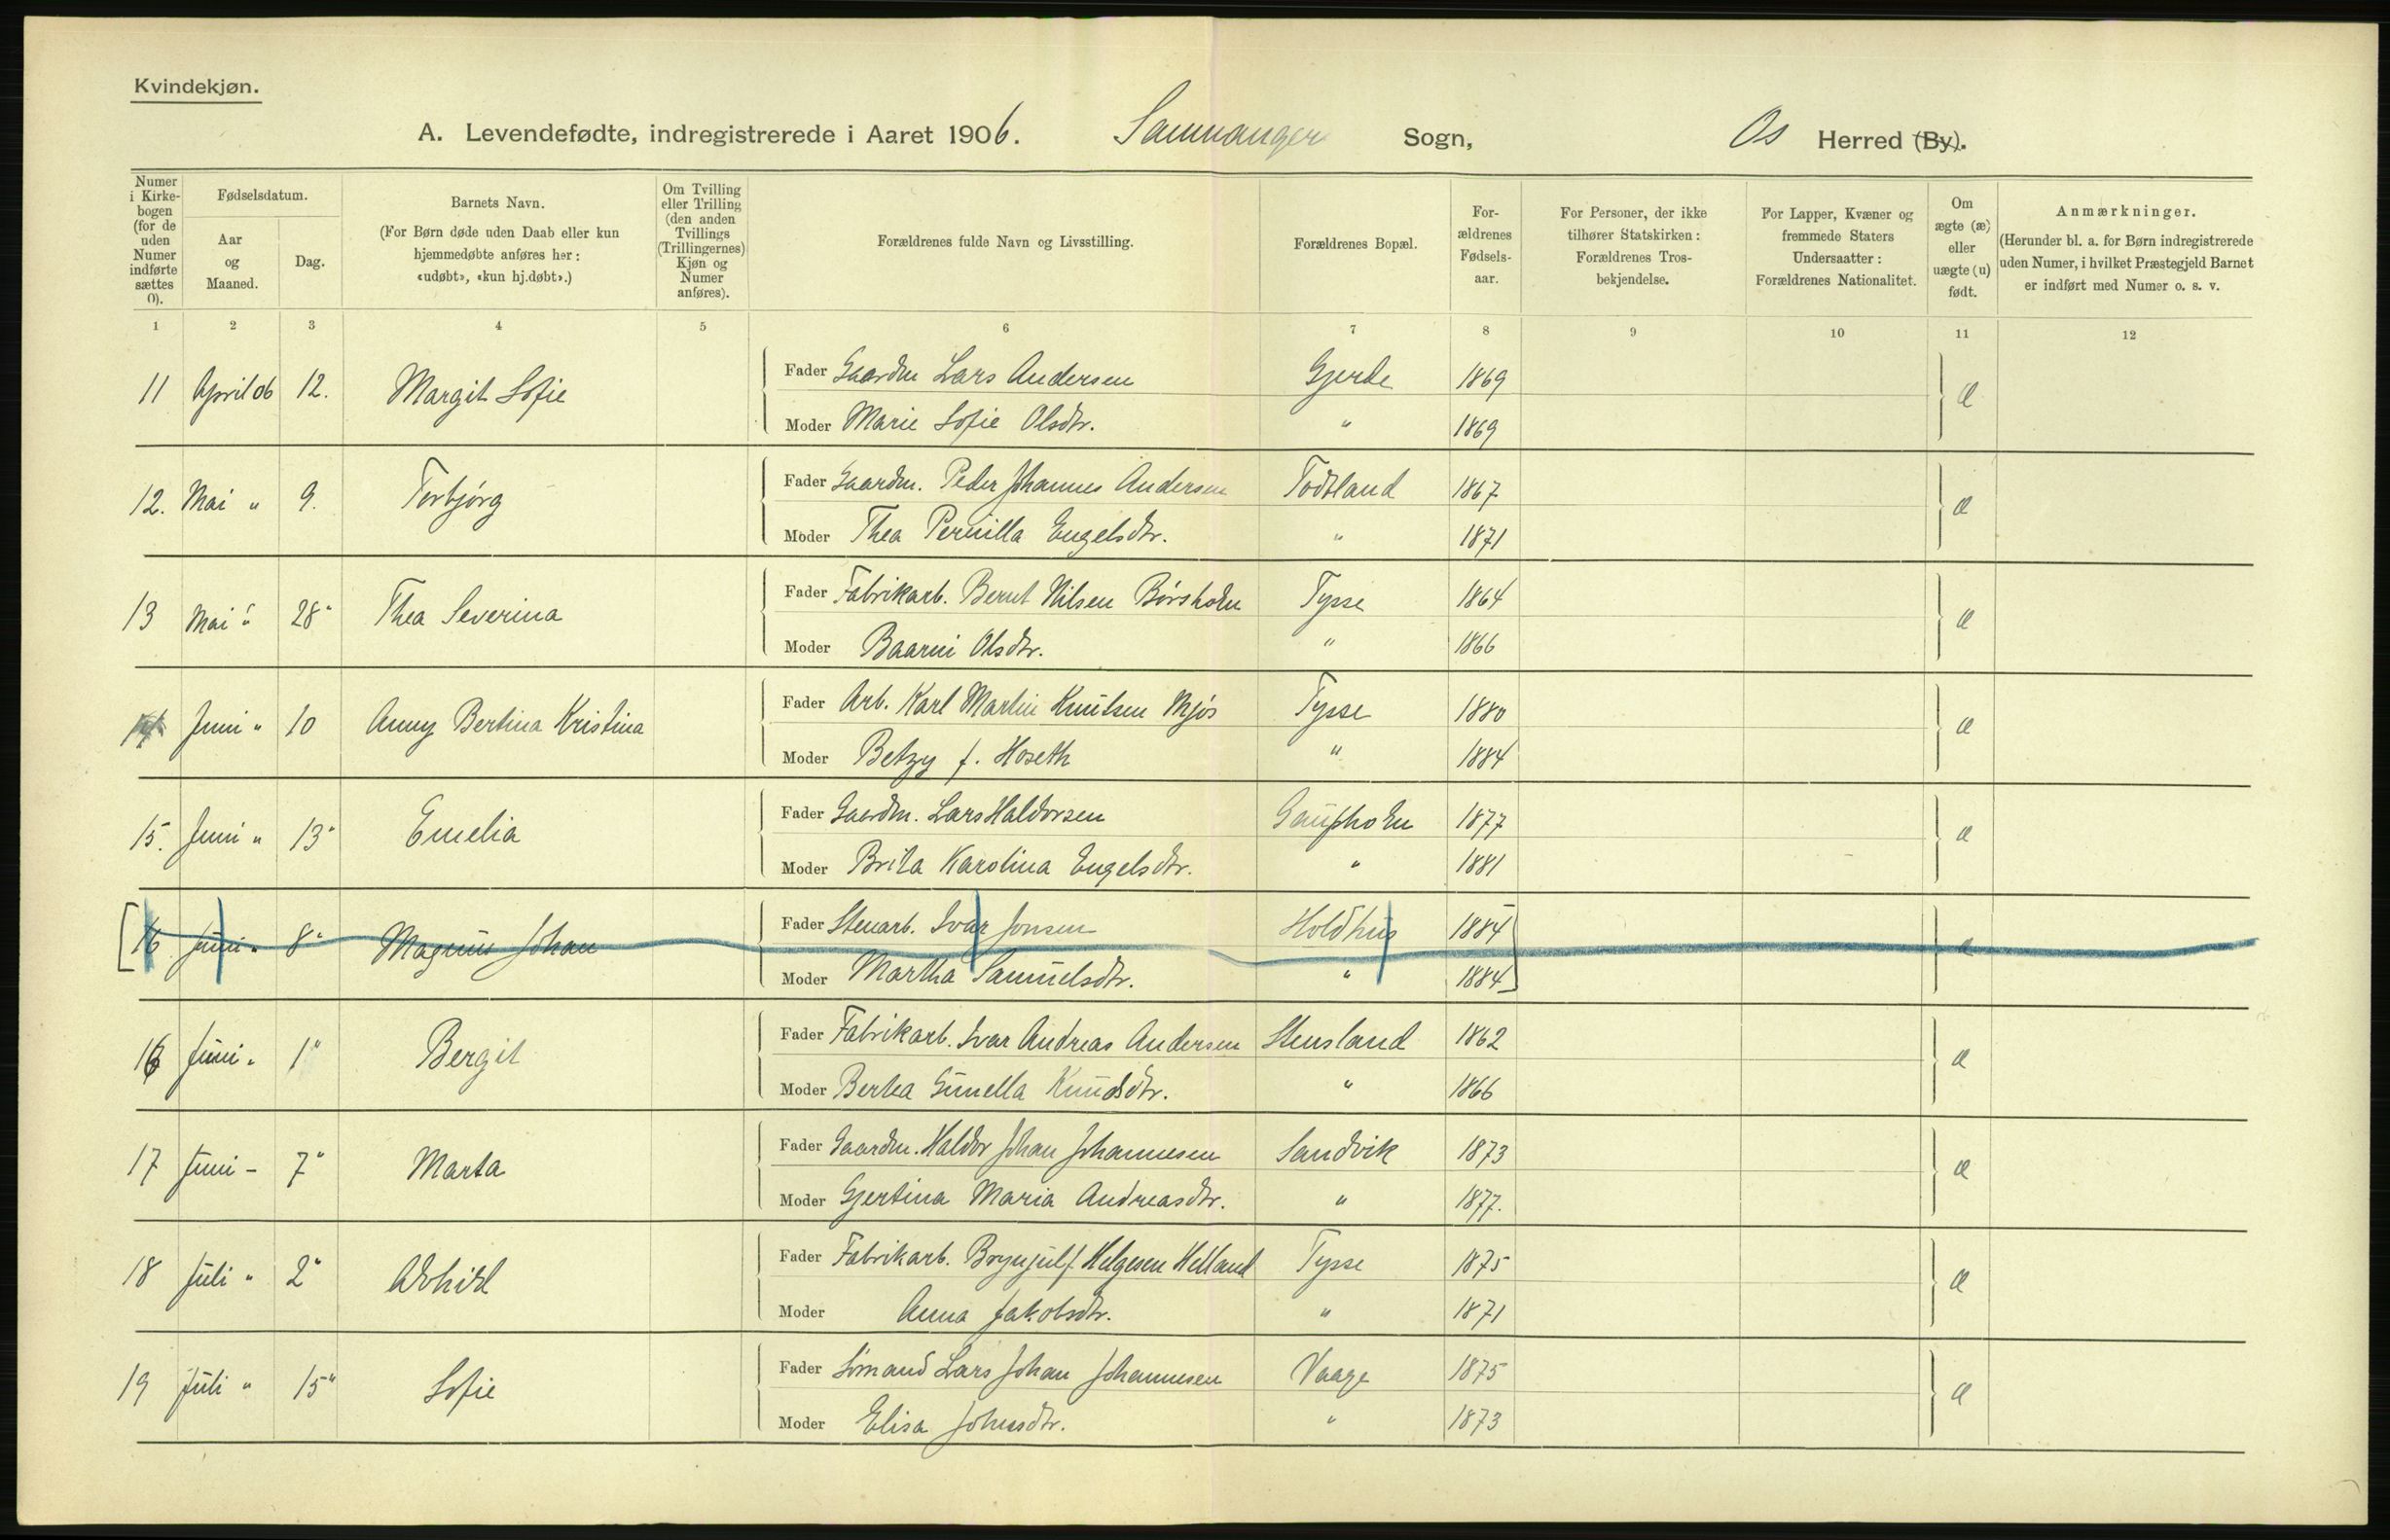 Kvindekjøn.
A. Levendefødte, indregistrerede i Aaret 1906. Samnanger Sogn, Os Herred (By).
Numer i Kirkebogen (for de uden Numer indførte sættes 0).
Fødselsdatum.
Aar og Maaned.
Dag.
Barnets Navn.
(For Børn døde uden Daab eller kun hjemmedøbte anføres her: «udøbt», «kun hj.døbt».)
Om Tvilling eller Trilling (den anden Tvillings (Trillingernes) Kjøn og Numer anføres).
Forældrenes fulde Navn og Livsstilling.
Forældrenes Bopæl.
Forældrenes Fødselsaar.
For Personer, der ikke tilhører Statskirken: Forældrenes Trosbekjendelse.
For Lapper, Kvæner og fremmede Staters Undersaatter: Forældrenes Nationalitet.
Om ægte (æ) eller uægte (u) født.
Anmærkninger.
(Herunder bl. a. for Børn indregistrerede uden Numer, i hvilket Præstegjeld Barnet er indført med Numer o. s. v.
1 2 3 4 5 6 7 8 9 10 11 12
11 April 06 12. Margit Sofie Fader Gaardm Lars Andersen Gjerde 1869 æ
Moder Marie Sofie Olsdtr. " 1869
12. Mai " 9. Torbjórg Fader Gaardm. Peder Johannes Andersen Todtland 1867 æ
Moder Thea Pernilla Engelsdtr. " 1871
13 Mai " 28" Thea Severina Fader Fabrikarb. Bernt Nilsen Børsholm Tysse 1864 æ
Moder Baarni Olsdtr. " 1866
14 Juni " 10 Anny Bertina Kristina Fader Arb. Karl Martin Knutsen Mjós Tysse 1880 æ
Moder Betzy f. Hoseth " 1884
15. Juni " 13" Emelia Fader Gaardm. Lars Haldorsen Gaupholm 1877 æ
Moder Brita Karolina Engelsdtr. " 1881
[16 Juni " 8" Magnus Johan Fader Stenarb. Ivar Jonsen Holdhus 1884 æ
Moder Martha Samuelsdtr. " 1884]
16 Juni " 1" Bergit Fader Fabrikarb. Ivar Andreas Andersen Stensland 1862 æ
Moder Berta Gunella Knudsdtr. " 1866
17 Juni - 7" Marta Fader Gaardm. Haldor Johan Johannesen Sandvik 1873 æ
Moder Gjertina Maria Andreasdtr. " 1877.
18 Juli " 2" Advhild Fader Fabrikarb. Brynjulf Helgesen Helland Tysse 1875 æ
Moder Anna Jakobsdtr. " 1871
19 Juli " 15" Sofie Fader Sómand Lars Johan Johannesen Vaage 1875 æ
Moder Elisa Johnsdtr. " 1873